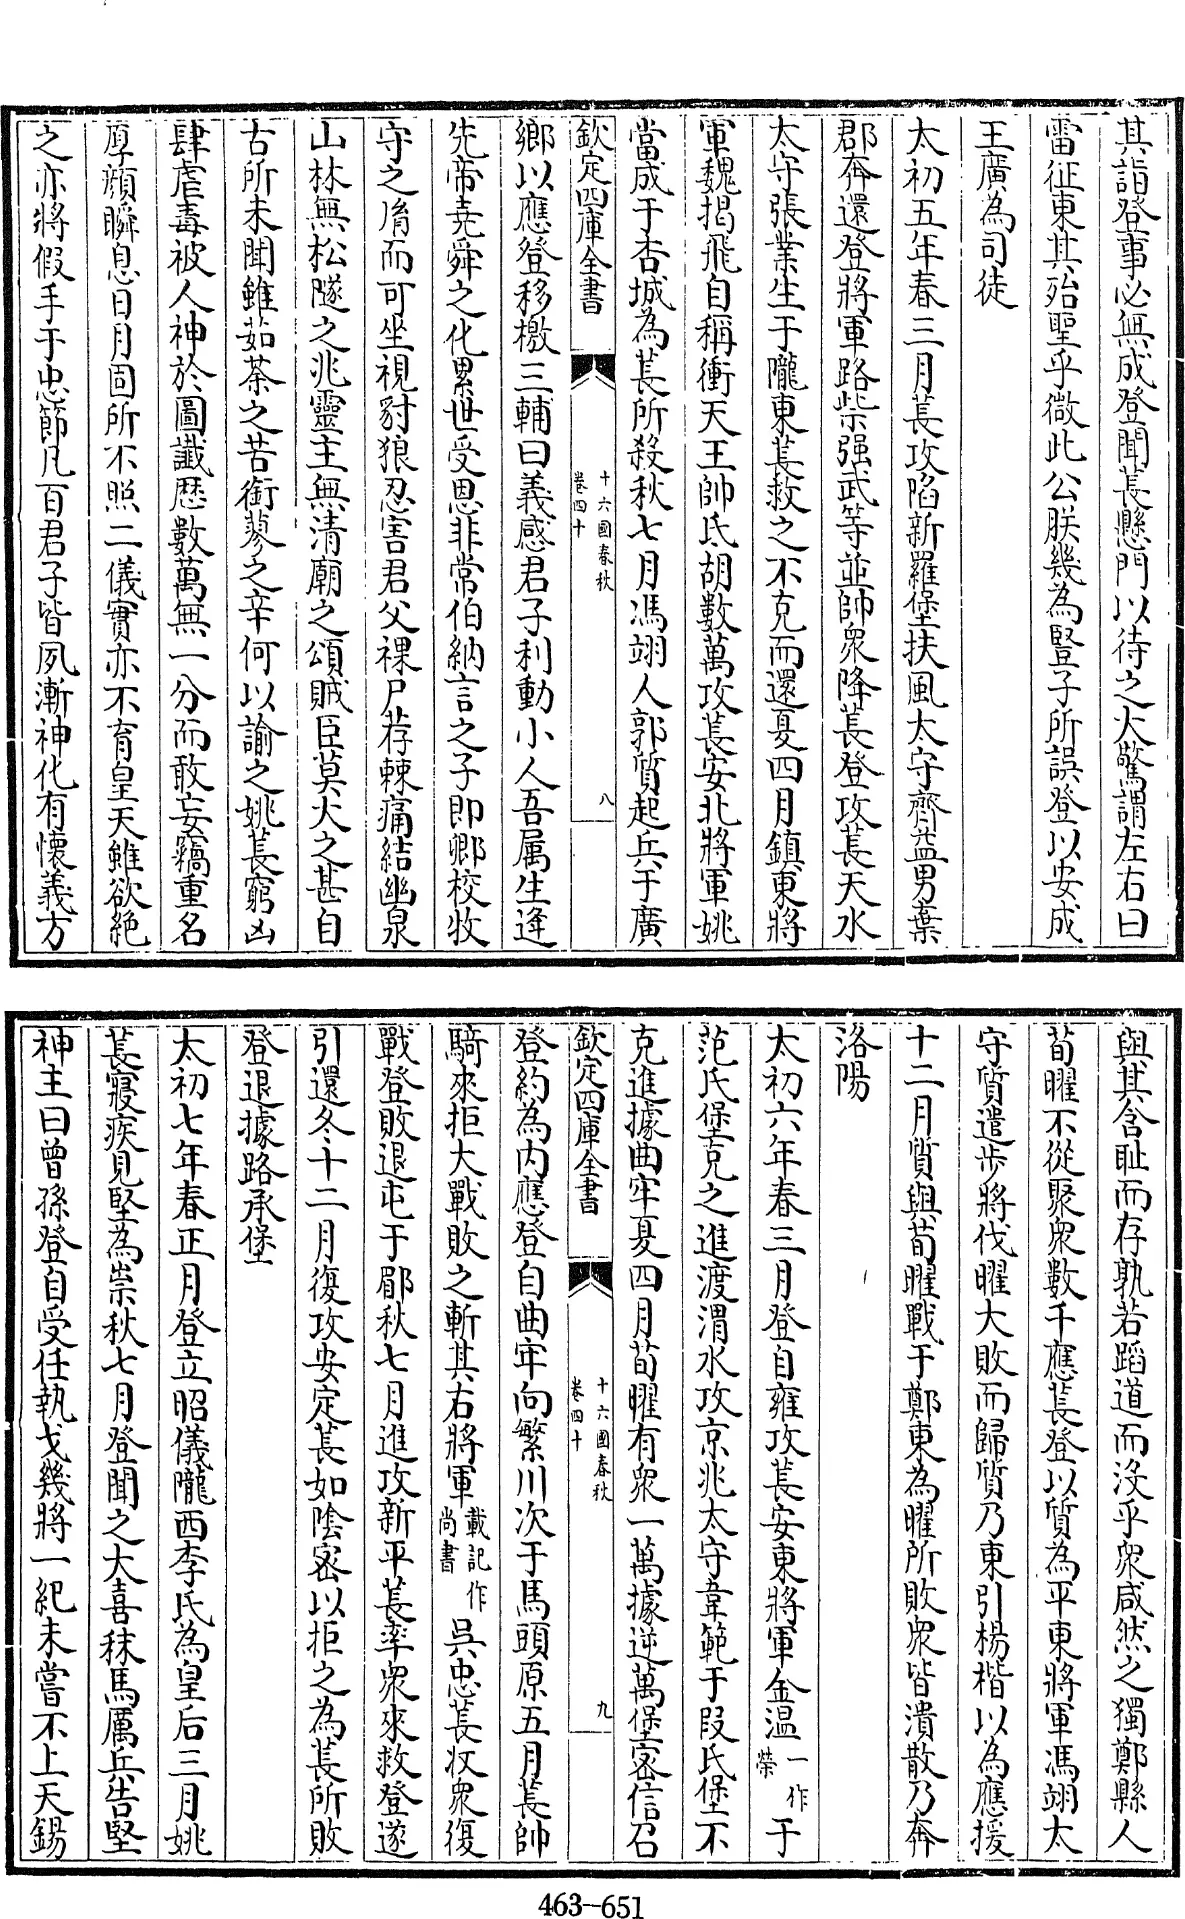 其詣登事必無成登聞萇懸門以待之大驚謂左右曰
雷征東其殆聖乎微此公朕幾為豎子所誤登以安成
王廣為司徒
太初五年春三月萇攻陷新羅堡扶風太守齊益男棄
郡奔還登將軍路柴强武等並帥衆降萇登攻萇天水
太守張業生于隴東萇救之不克而還夏四月鎮東將
軍魏揭飛自稱衝天王帥氐胡數萬攻萇安北將軍姚
當成于杏城為萇所殺秋七月馮翊人郭質起兵于廣
欽定四庫全書
十六國春秋
卷四十
八
鄉以應登移檄三輔曰義感君子利動小人吾属生逢
先帝堯舜之化累世受恩非常伯納言之子即卿校牧
守之胄而可坐視豺狼忍害君父裸尸荐棘痛結幽泉
山林無松隧之兆靈主無清廟之頌賊臣莫大之甚自
古所未聞雖茹荼之苦銜蓼之辛何以諭之姚萇窮凶
肆虐毒被人神於圖讖歴數萬無一分而敢妄竊重名
厚顔瞬息日月固所不照二儀實亦不育皇天雖欲絶
之亦將假手于忠節凡百君子皆夙漸神化有懷義方
與其含耻而存孰若蹈道而沒乎衆咸然之獨鄭縣人
荀曜不從聚衆數千應萇登以質為平東將軍馮翊太
守質遣步將伐曜大敗而歸質乃東引楊楷以為應援
十二月質與荀曜戰于鄭東為曜所敗衆皆潰散乃奔
洛陽
太初六年春三月登自雍攻萇安東將軍金温一作榮于
范氏堡克之進渡渭水攻京兆太守韋範于段氏堡不
克進據曲牢夏四月荀曜有衆一萬據逆萬堡密信召
欽定四庫全書
十六國春秋
卷四十
九
登約為内應登自曲牢向繁川次于馬頭原五月萇帥
騎來拒大戰敗之斬其右將軍載記作尚書吳忠萇收衆復
戰登敗退屯于郿秋七月進攻新平萇率衆來救登遂
引還冬十二月復攻安定萇如陰密以拒之為萇所敗
登退據路承堡
太初七年春正月登立昭儀隴西李氏為皇后三月姚
萇寢疾見堅為祟秋七月登聞之大喜秣馬厲兵告堅
神主曰曾孫登自受任執戈幾將一紀未嘗不上天錫
463-651